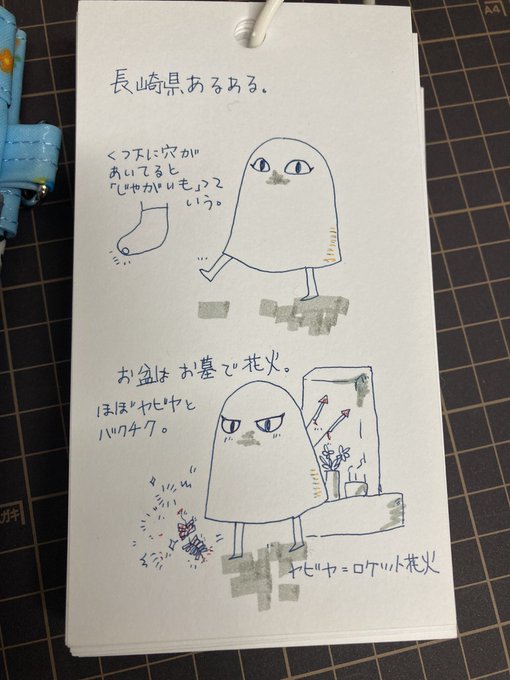 長崎県あるある。
くつ下に穴が
あいてると
「じゃがいも」って
いう。
お盆はお墓で花火。
ほぼヤビヤと
バクチク。
ヤビヤ=ロケット花火
A4
ガキ